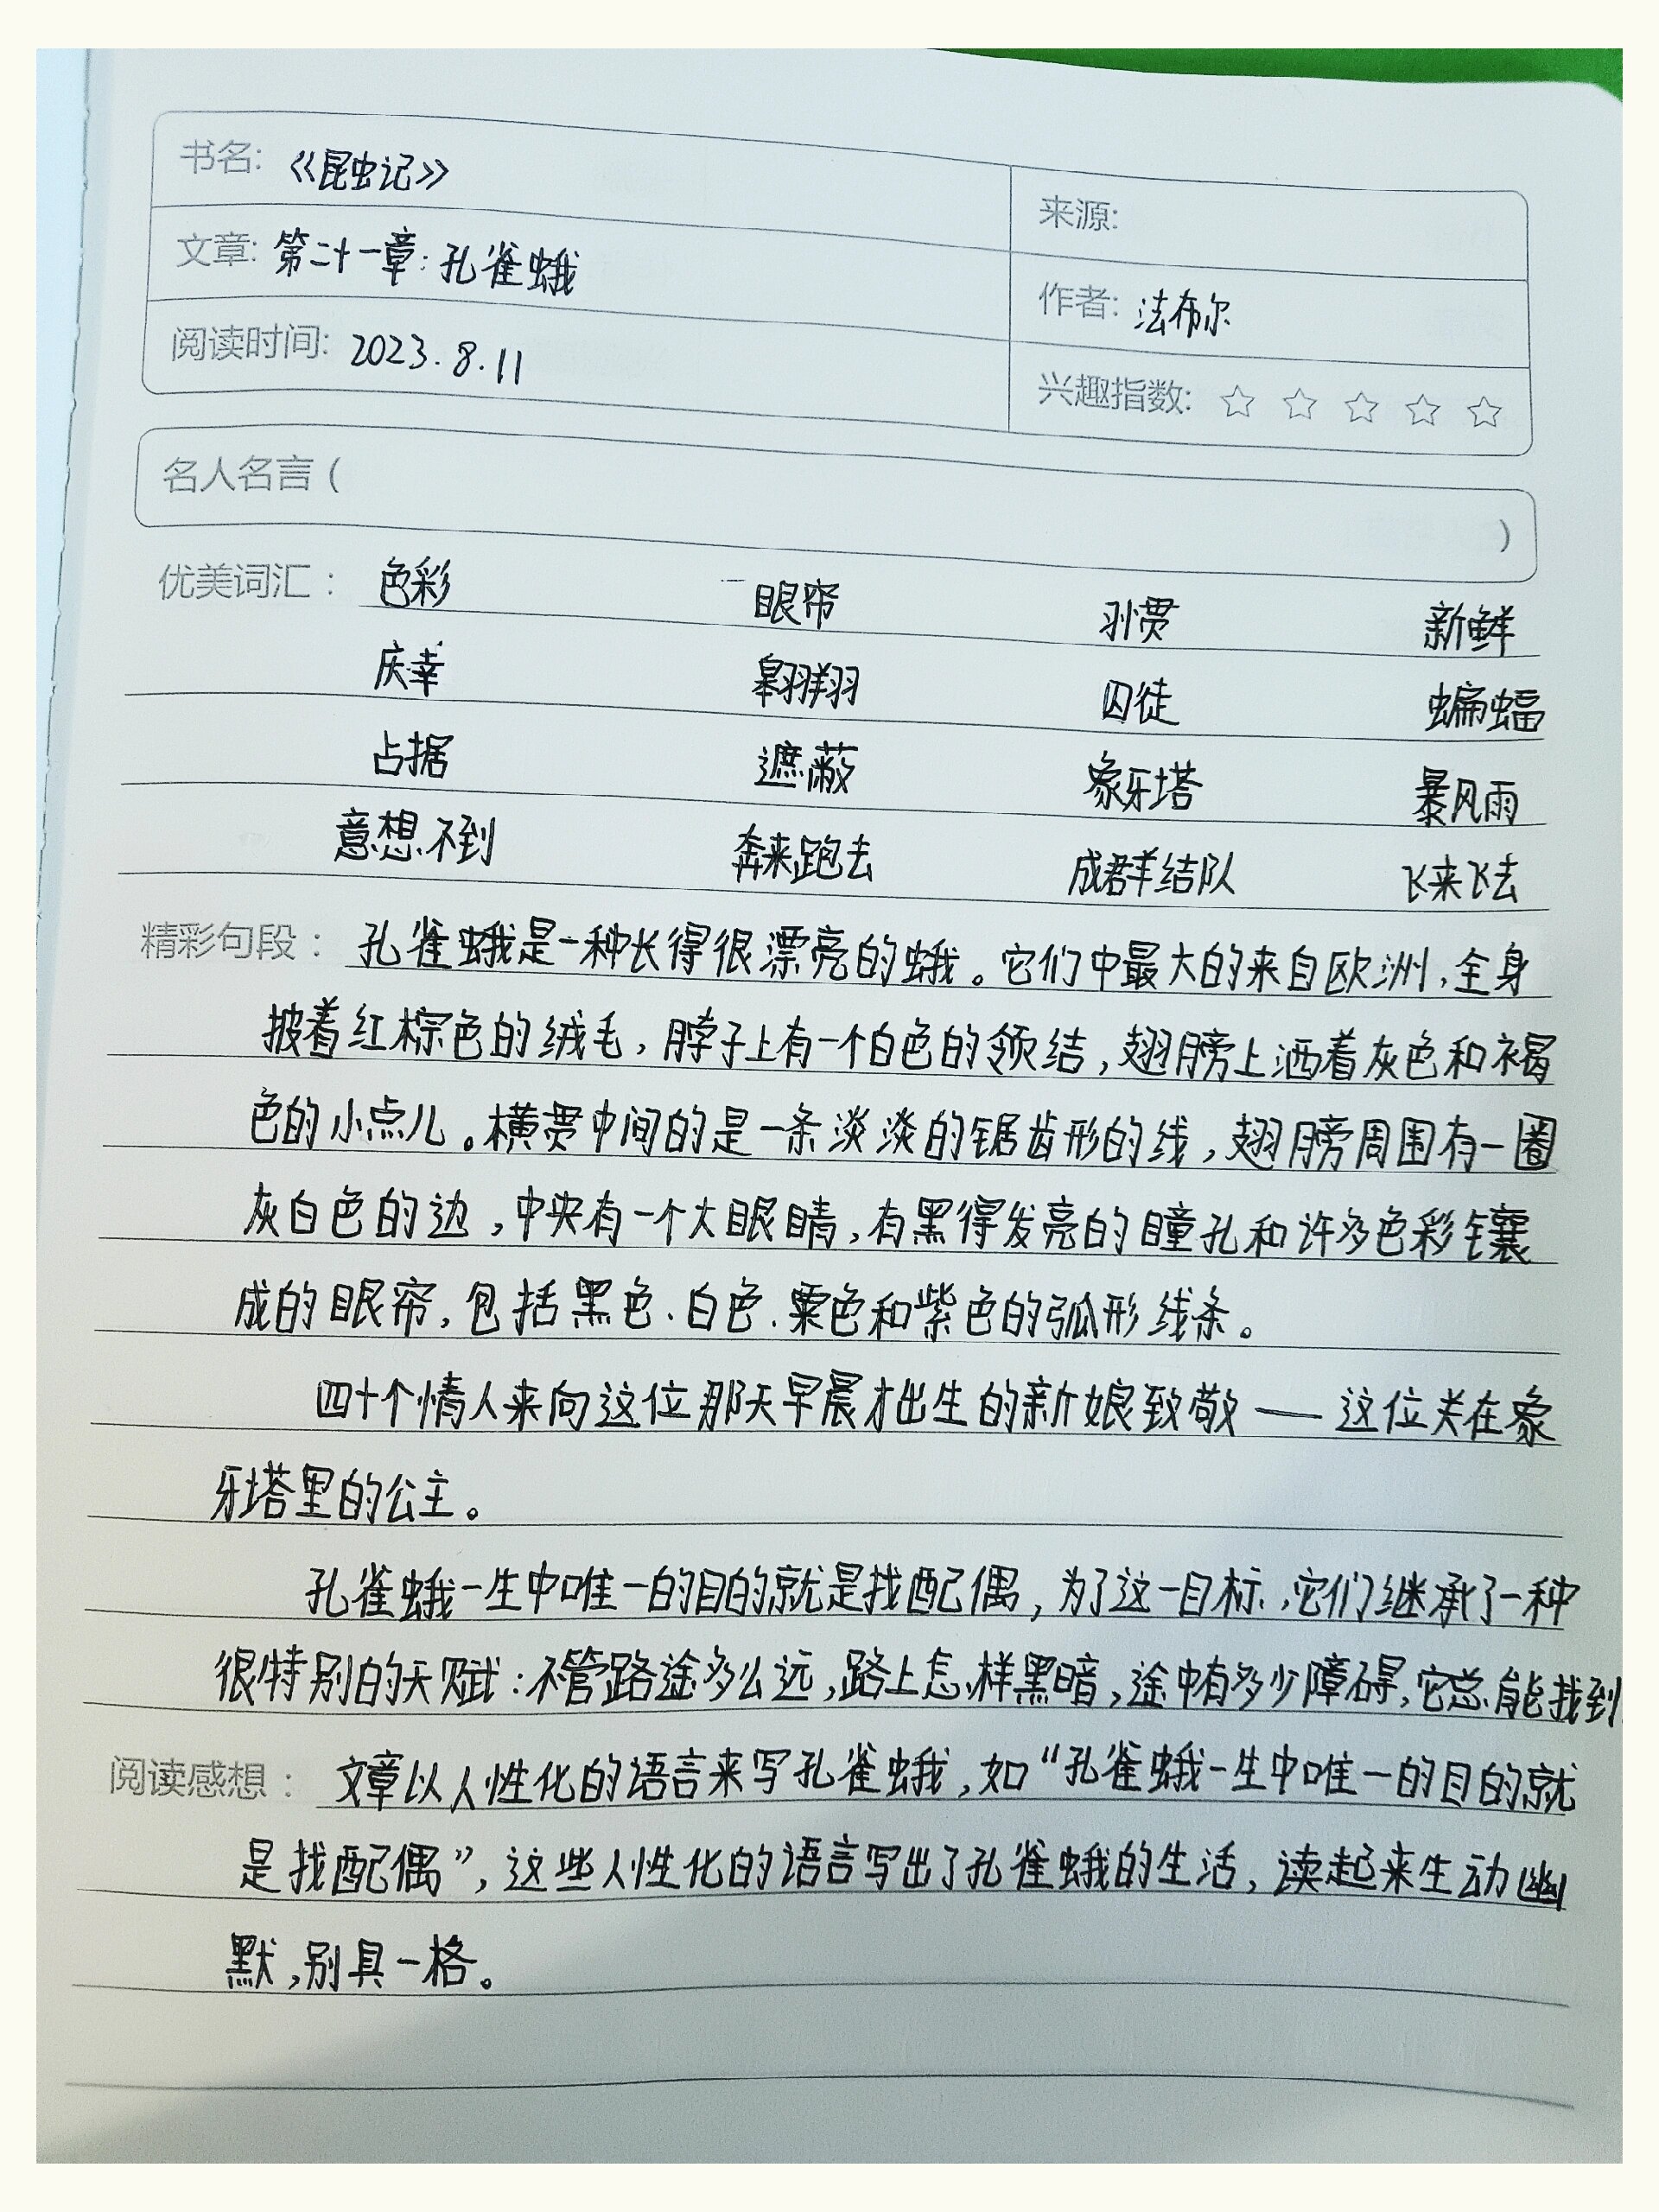 书名: 《昆虫记》
来源:
文章: 第二十一章: 孔雀蛾
作者: 法布尔
阅读时间: 2023.8.11
兴趣指数: ☆ ☆ ☆ ☆ ☆
名人名言 ( )
优美词汇: 色彩 眼帘 习惯 新鲜
庆幸 翱翔 囚徒 蝙蝠
占据 遮蔽 象牙塔 暴风雨
意想不到 奔来跑去 成群结队 飞来飞去
精彩句段: 孔雀蛾是一种长得很漂亮的蛾。它们中最大的来自欧洲,全身
披着红棕色的绒毛,脖子上有一个白色的领结,翅膀上洒着灰色和褐
色的小点儿。横贯中间的是一条淡淡的锯齿形的线,翅膀周围有一圈
灰白色的边,中央有一个大眼睛,有黑得发亮的瞳孔和许多色彩镶
成的眼帘,包括黑色、白色、栗色和紫色的弧形线条。
四十个情人来向这位那天早晨才出生的新娘致敬——这位关在象
牙塔里的公主。
孔雀蛾一生中唯一的目的就是找配偶,为了这一目标,它们继承了一种
很特别的天赋:不管路途多么远,路上怎样黑暗,途中有多少障碍,它总能找到
阅读感想: 文章以人性化的语言来写孔雀蛾,如“孔雀蛾一生中唯一的目的就
是找配偶”,这些人性化的语言写出了孔雀蛾的生活,读起来生动幽
默,别具一格。